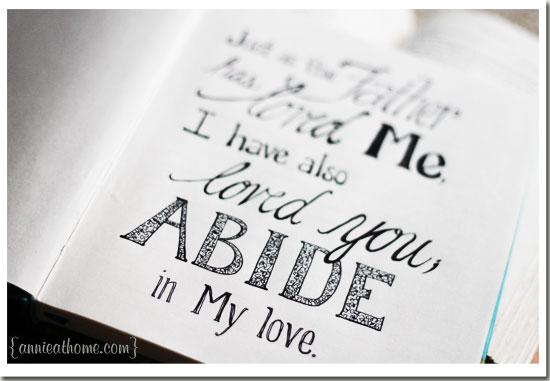 Just as the Father
has loved Me,
I have also
loved you;
ABIDE
in My love.
{annieathome.com}